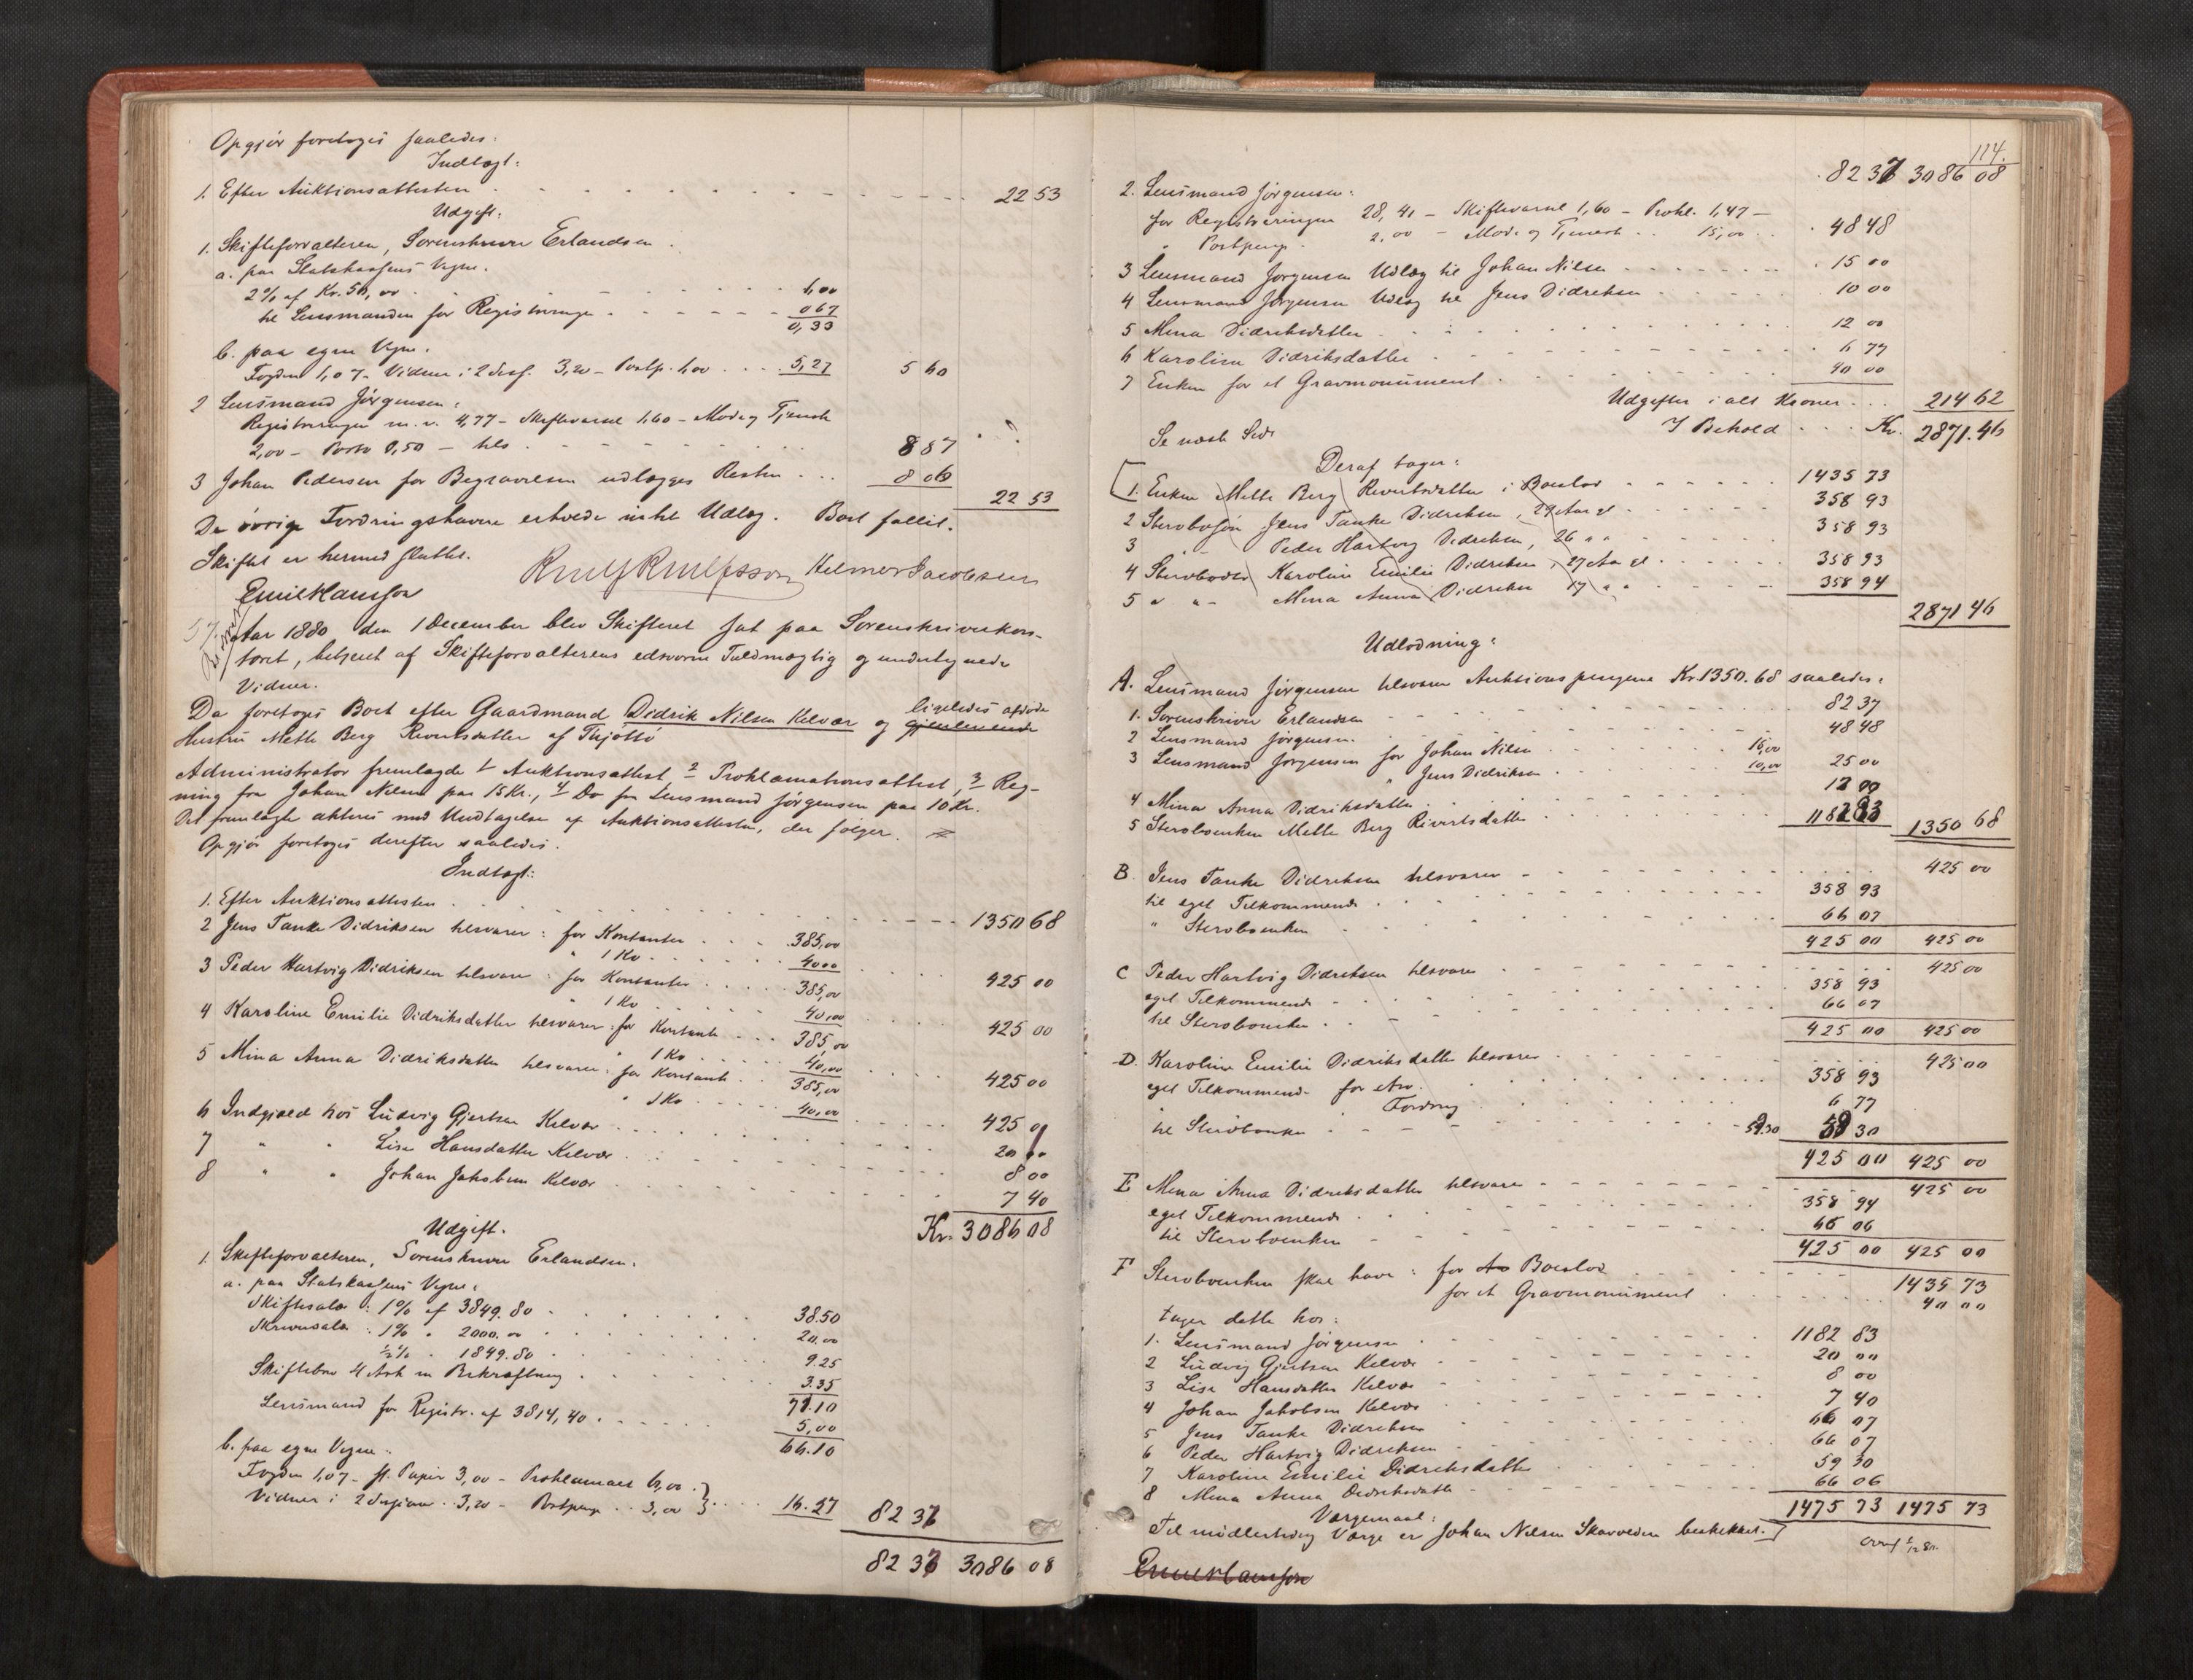 Opgjör foretoges saaledes:
Indtægt:
1. Efter Auktionsattesten 22 53
Udgift:
1. Skifteforvalteren, Sorenskriver Erlandsen
a. paa Statskassens Vegne.
2% af Kr. 50,00 1,00
til Lensmanden for Registrering 0 67
0,33
b. paa egne Vegne.
Fogden 1,07 - Vidner i 2 Sess. 3,20 - Postp. 1,00 5,27 5 60
2 Lensmand Jörgensen:
Registreringen m. v. 4,77 - Skiftevarsel 1,60 - Mode og Tjeneste
2,00 - Porto 0,50 - tils 8 87
3 Johan Pedersen for Begravelsen udlægges Resten 8 06
22 53
De övrige Fordringshavere erholde intet Udlæg. Boet fallit.
Skiftet er hermed sluttet.
Emil Hansson Knuf Knulfsson Hilmer Jacobsen
57. Aar 1880 den 1 December blev Skifteret sat paa Sorenskriverkon-
toret, betjent af Skifteforvalterens edsvorne Fuldmægtig og undertegnede
Vidner.
ligeledes afdøde
Da foretoges Boet efter Gaardmand Didrik Nilsen Kelvær og gjenlevende
Hustru Mette Berg Revertsdatter af Thjøttö
Administrator fremlagde 1 Auktionsattest, 2 Proklamationsattest, 3 Reg-
ning fra Johan Nilsen paa 15 Kr., 4 Do fra Lensmand Jörgensen paa 10 Kr.
Det fremlagte akteres med Undtagelse af Auktionsattesten, der følger.
Opgjör foretoges derefter saaledes.
Indtægt:
1. Efter Auktionsattesten 1350 68
2 Jens Tanke Didriksen tilsvarer: for Kontanter 385,00
" 1 Ko 40 00
425 00
3 Peder Hartvig Didriksen tilsvarer: for Kontanter 385,00
" 1 Ko 40,00
425 00
4 Karoline Emilie Didriksdatter tilsvarer: for Kontant 385 00
" 1 Ko 40,00
425 00
5 Mina Anna Didriksdatter tilsvarer: for Kontant 385,00
" 1 Ko 40,00
425 00
6 Indgjæld hos Ludvig Gjertsen Kelvær 20 00
7 " " Lise Hansdatter Kelvær 8 00
8 " " Johan Jakobsen Kelvær 7 40
Kr. 3086 08
Udgift.
1. Skifteforvalteren, Sorenskriver Erlandsen.
a. paa Statskassens Vegne:
Skiftesalær: 1% af 3849.80 38.50
Skriversalær: 1% " 2000.00 20.00
½% " 1849.80 9.25
Skiftebrev 4 Ark m Bekræftning 3.35
71.10
Lensmand for Registr. af 3814,40 5,00
66.10
b. paa egne Vegne:
Fogden 1,07 - st. Papir 3,00 - Proklamaet 6,00
Vidner i 2 Sessioner 3,20 - Postpenge 3,00 16.27 82 37
82 37 3086 08
114.
82 37 3086 08
2. Lensmand Jörgensen:
for Registreringen 28,41 - Skiftevarsel 1,60 - Prokl. 1,47 -
" Postpenge 2,00 - Mode og Tjeneste 15,00 48 48
3 Lensmand Jørgensen Udlæg til Johan Nilsen 15 00
4 Lensmand Jørgensen Udlæg til Jens Didriksen 10 00
5 Mina Didriksdatter 12 00
6 Karoline Didriksdatter 6 77
7 Enken for et Gravmonument 40 00
Udgifter i alt Kroner 214 62
I Behold Kr. 2871.46
Se næste Side
Deraf tager:
1. Enken Mette Berg Revertsdatter i Boeslod 1435 73
2 Sterbosøn Jens Tanke Didriksen, 29 Aar gl 358 93
3 " Peder Hartvig Didriksen, 26 " " 358 93
4 Sterbodatter Karoline Emilie Didriksen, 27 Aar gl 358 93
5 " " Mina Anna Didriksen 17 " " 358 94
2871 46
Udlodning:
A. Lensmand Jörgensen tilsvarer Auktionspengene Kr. 1350.68 saaledes:
1. Sorenskriver Erlandsen 82 37
2 Lensmand Jörgensen 48 48
3 Lensmand Jørgensen for Johan Nilsen 15,00
" Jens Didriksen 10,00 25 00
4 Mina Anna Didriksdatter 12 00
5 Sterboenken Mette Berg Revertsdatter 1182 83 1350 68
B. Jens Tanke Didriksen tilsvarer 425 00
til eget Tilkommende 358 93
" Sterboenken 66 07
425 00 425 00
C Peder Hartvig Didriksen tilsvarer 425 00
eget Tilkommende 358 93
til Sterboenken 66 07
425 00 425 00
D. Karoline Emilie Didriksdatter tilsvarer 425 00
eget Tilkommende for Arv 358 93
Fordring 6 77
til Sterboenken 59.30 59 30
425 00 425 00
E Mina Anna Didriksdatter tilsvarer 425 00
eget Tilkommende 358 94
til Sterboenken 66 06
425 00 425 00
F Sterboenken skal have: for Ar Boeslod 1435 73
for et Gravmonument 40 00
tager dette hos:
1. Lensmand Jörgensen 1182 83
2 Ludvig Gjertsen Kelvær 20 00
3 Lise Hansdatter Kelvær 8 00
4 Johan Jakobsen Kelvær 7 40
5 Jens Tanke Didriksen 66 07
6 Peder Hartvig Didriksen 66 07
7 Karoline Emilie Didriksdatter 59 30
8 Mina Anna Didriksdatter 66 06
1475 73 1475 73
Værgemaal:
Til midlertidig Værge er Johan Nilsen beskikket.
Emil Hansson